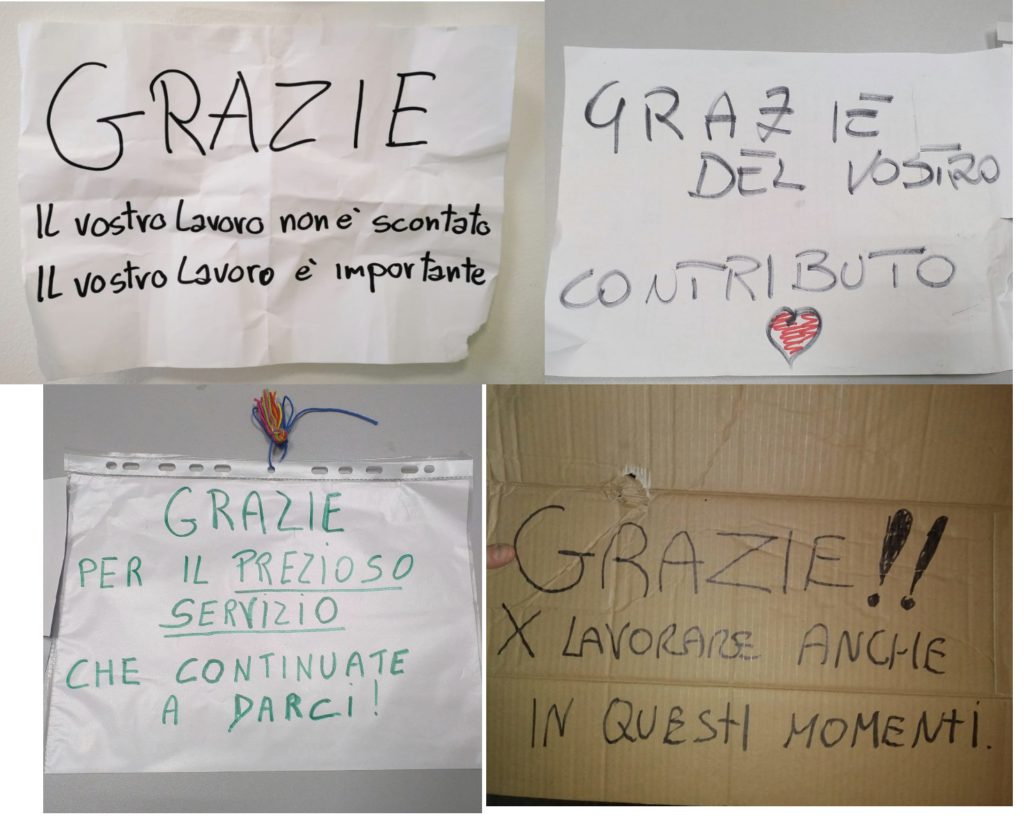 GRAZIE
Il vostro lavoro non è scontato
Il vostro lavoro è importante
GRAZIE
DEL VOSTRO
CONTRIBUTO
GRAZIE
PER IL PREZIOSO
SERVIZIO
CHE CONTINUATE
A DARCI!
GRAZIE!!
X LAVORARE ANCHE
IN QUESTI MOMENTI.